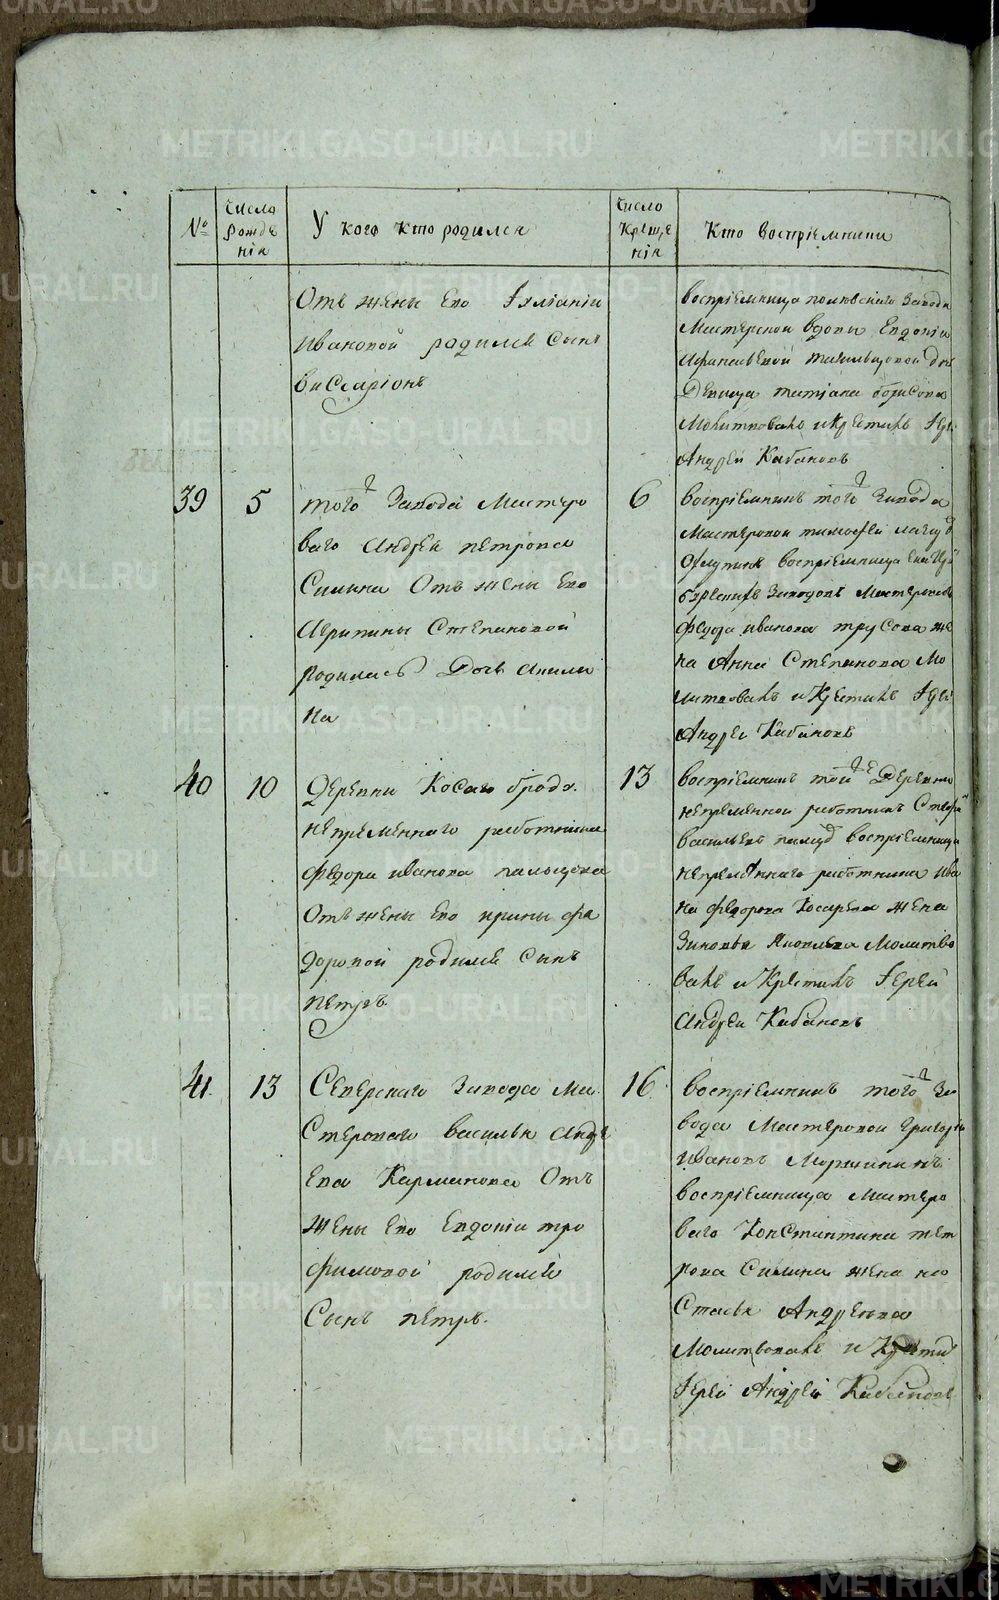 №
Число рождѣнія
У кого кто родился
Число Крѣщенія
Кто воспріемники
Отъ жены Его Іуліаніи
Ивановой родился Сынъ
Виссаріонъ
воспріемница полевскаго Завода
Мастерской вдовы Евдокіи
дочь
Девица татіана борисова
Молитвовалъ и Крестилъ Іерей
Андрей Кабановъ
39
5
того Завода Мастеро
ваго Андрея петрова
Силина Отъ жены Его
Агрипины Степановой
родилась Дочь Акили
на
6
воспріемникъ того Завода
Мастеровой тимофей
воспріемница
Заводовъ Мастероваго
Федора иванова трусова же
на Анна Степанова Мо
литвовалъ и Крестилъ Іерей
Андрей Кабановъ
40
10
Деревни Косаго брода
непремѣннаго работника
Федора иванова
Отъ жены Его ирины Фе
доровой родился Сынъ
Петръ
13
воспріемникъ той Деревни
непременной работникъ
васильевъ воспріемница
непременнаго работника ива
на Федорова Косарева жена
Зиновья Яковлева Молитво
валъ и Крестилъ Іерей
Андрей Кабановъ
41
13
Северскаго Завода Ма
Стероваго василья Андре
Ева Карманова Отъ
жены Его Евдокіи тро
фимовой родился
Сынъ петръ.
16
воспріемникъ того За
вода Мастеровой григорій
Ивановъ
воспріемница Мастеро
ваго Константина пет
рова Силина жена на
Стасья Андреева
Молитвовалъ и Крестилъ
Іерей Андрей Кабановъ
METRIKI.GASO-URAL.RU